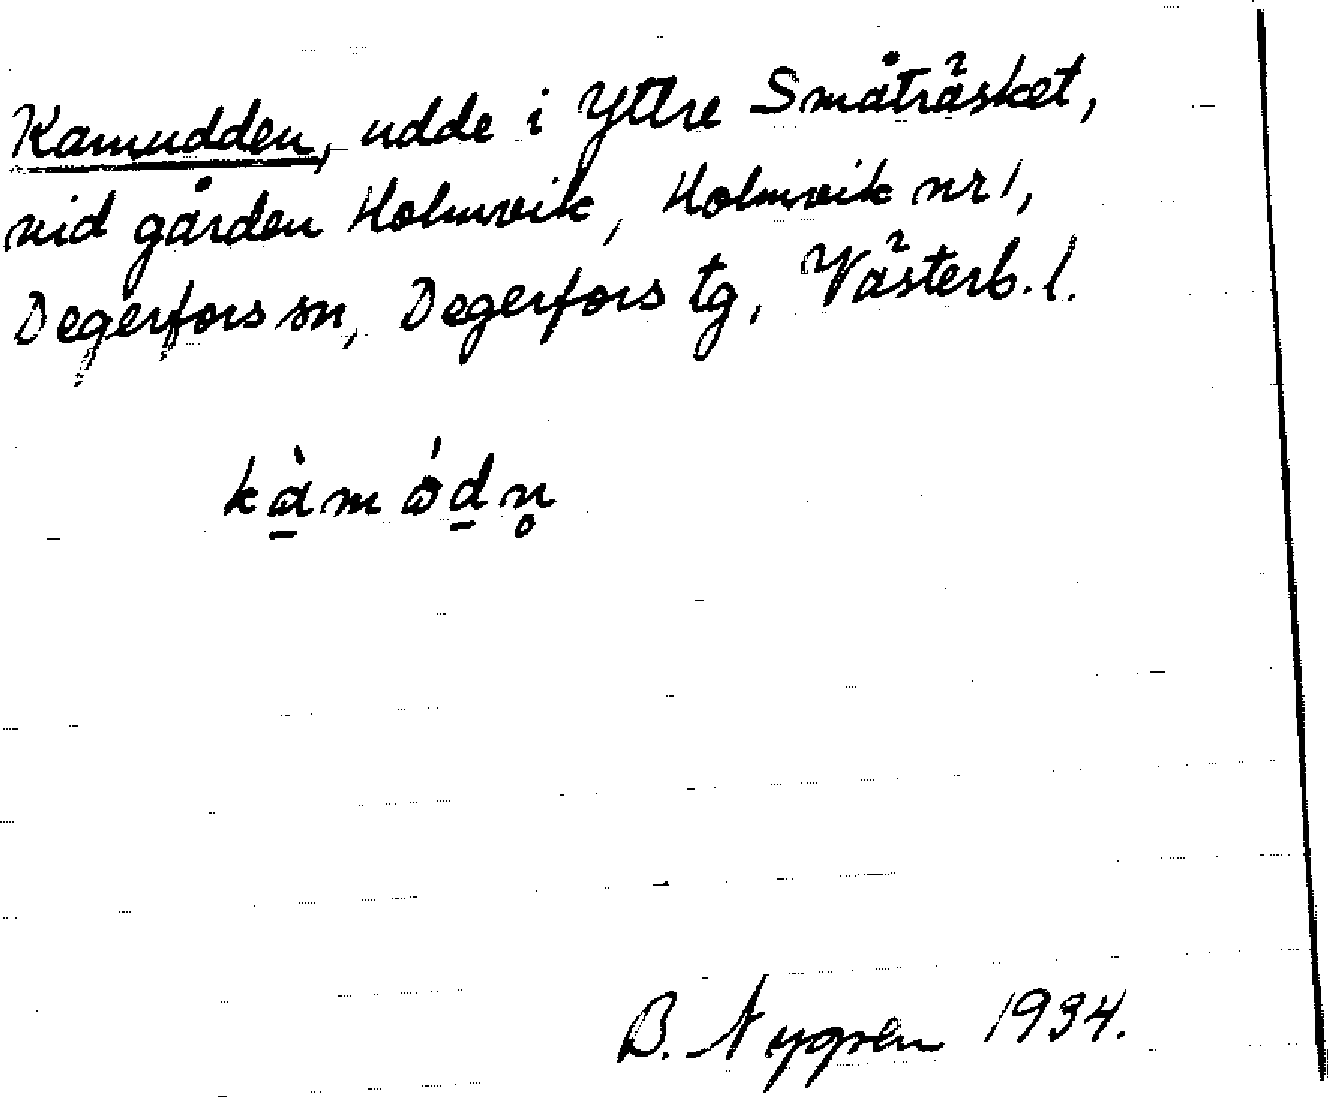 Kamudden, udde i Yttre Småträsket,
vid gården Holmvik, Holmvik nr 1,
Degerfors sn, Degerfors tg, Västerb. l.
kà̱m ó̱ḏn̥
B. Nygren 1934.